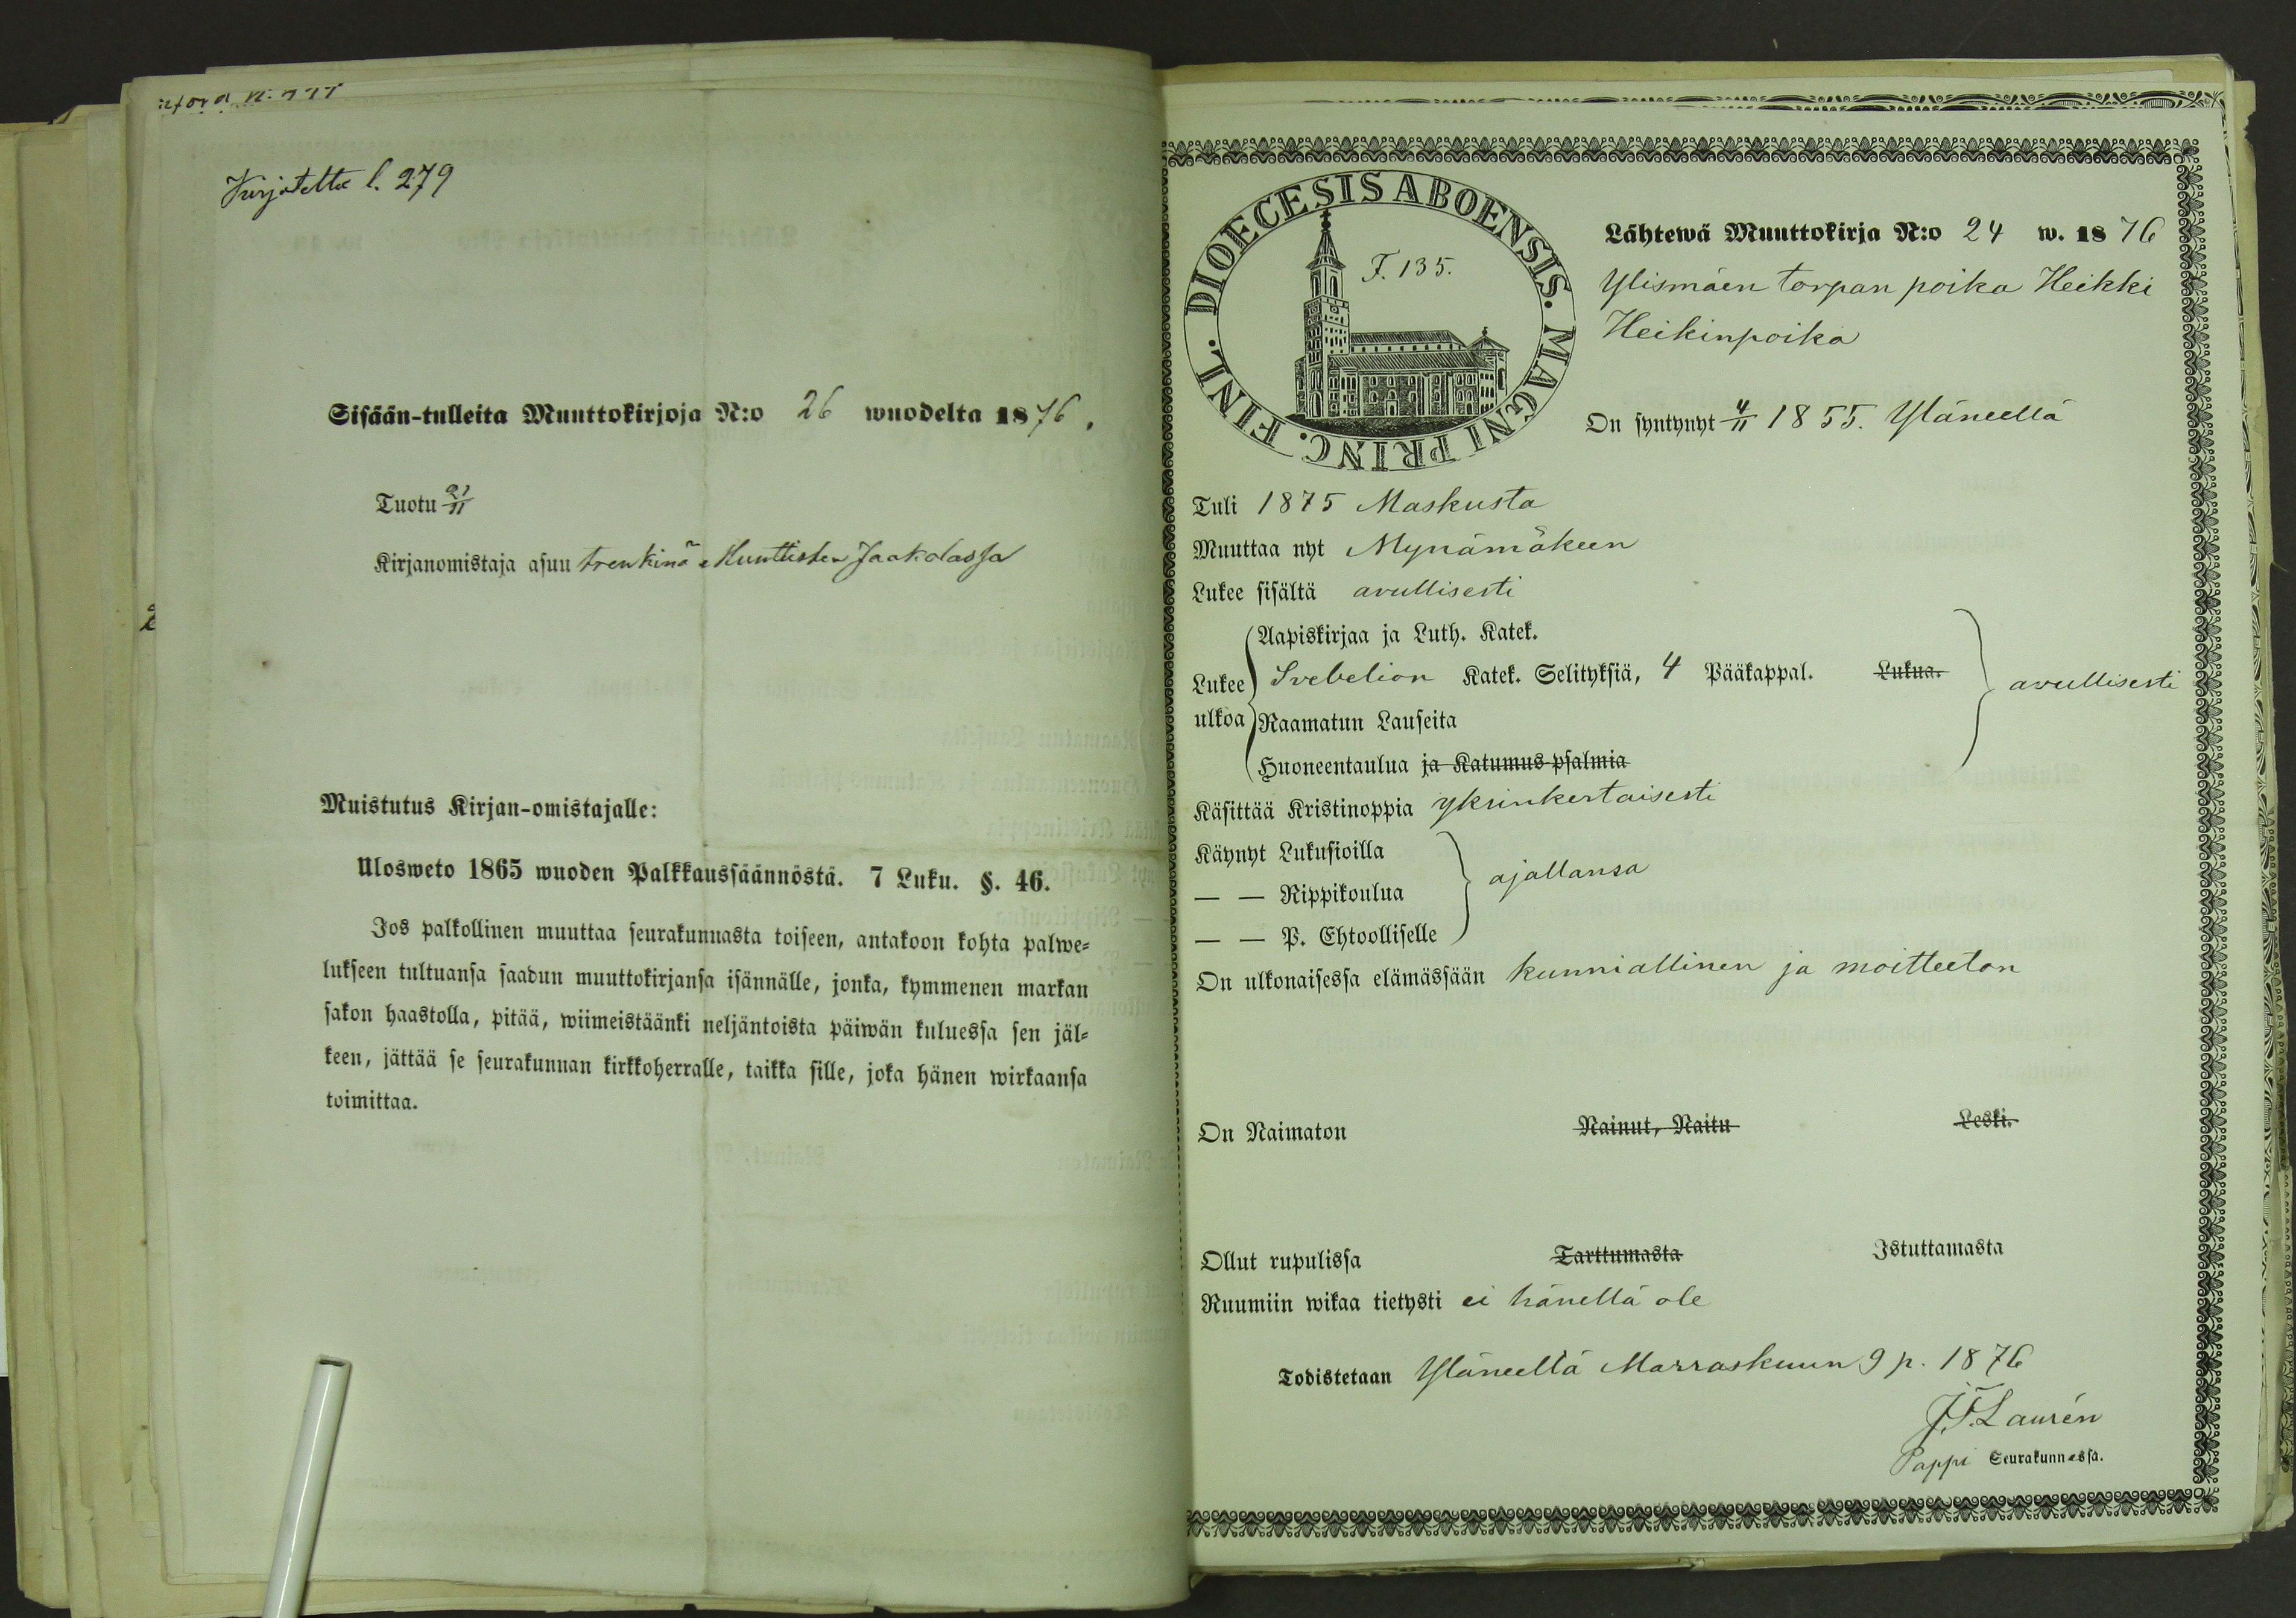 Kirjotettu l. 279
Sisään-tulleita Muuttokirjoja N:o 26 wuodelta 1876.
Tuotu 21/11
Kirjanomistaja asuu trenkinä Jaakolassa
Muistutus Kirjan-omistajalle:
Ulosweto 1865 wuoden Palkkaussäännöstä. 7 Luku. §. 46.
Jos palkollinen muuttaa seurakunnasta toiseen, antakoon kohta palwe-
lukseen tultuansa saadun muuttokirjansa isännälle, jonka, kymmenen markan
sakon haastolla, pitää, wiimeistäänki neljäntoista päiwän kuluessa sen jäl-
keen, jättää se seurakunnan kirkkoherralle, taikka sille, joka hänen wirkaansa
toimittaa.
DIOECESIS ABOENSIS. MAGNI PRINC. FINL.
F. 135.
Lähtewä Muuttokirja N:o 24 w. 1876
Ylismäen torpan poika Heikki
Heikinpoika
On syntynyt 4/11 1855. Yläneellä
Tuli 1875 Maskusta
Muuttaa nyt Mynämäkeen
Lukee sisältä avullisesti
Lukee ulkoa
Aapiskirjaa ja Luth. Katek.
Svebelion Katek. Selityksiä, 4 Pääkappal. Lukua. avullisesti
Raamatun Lauseita
Huoneentaulua ja Katumus-psalmia
Käsittää Kristinoppia yksinkertaisesti
Käynyt Lukusioilla
— — Rippikoulua ajallansa
— — P. Ehtoolliselle
On ulkonaisessa elämässään kunniallinen ja moitteeton
On Naimaton Nainut, Naitu Leski.
Ollut rupulissa Tarttumasta Istuttamasta
Ruumiin wikaa tietysti ei hänellä ole
Todistetaan Yläneellä Marraskuun 9 p. 1876
J. F. Laurén
Pappi Seurakunnassa.